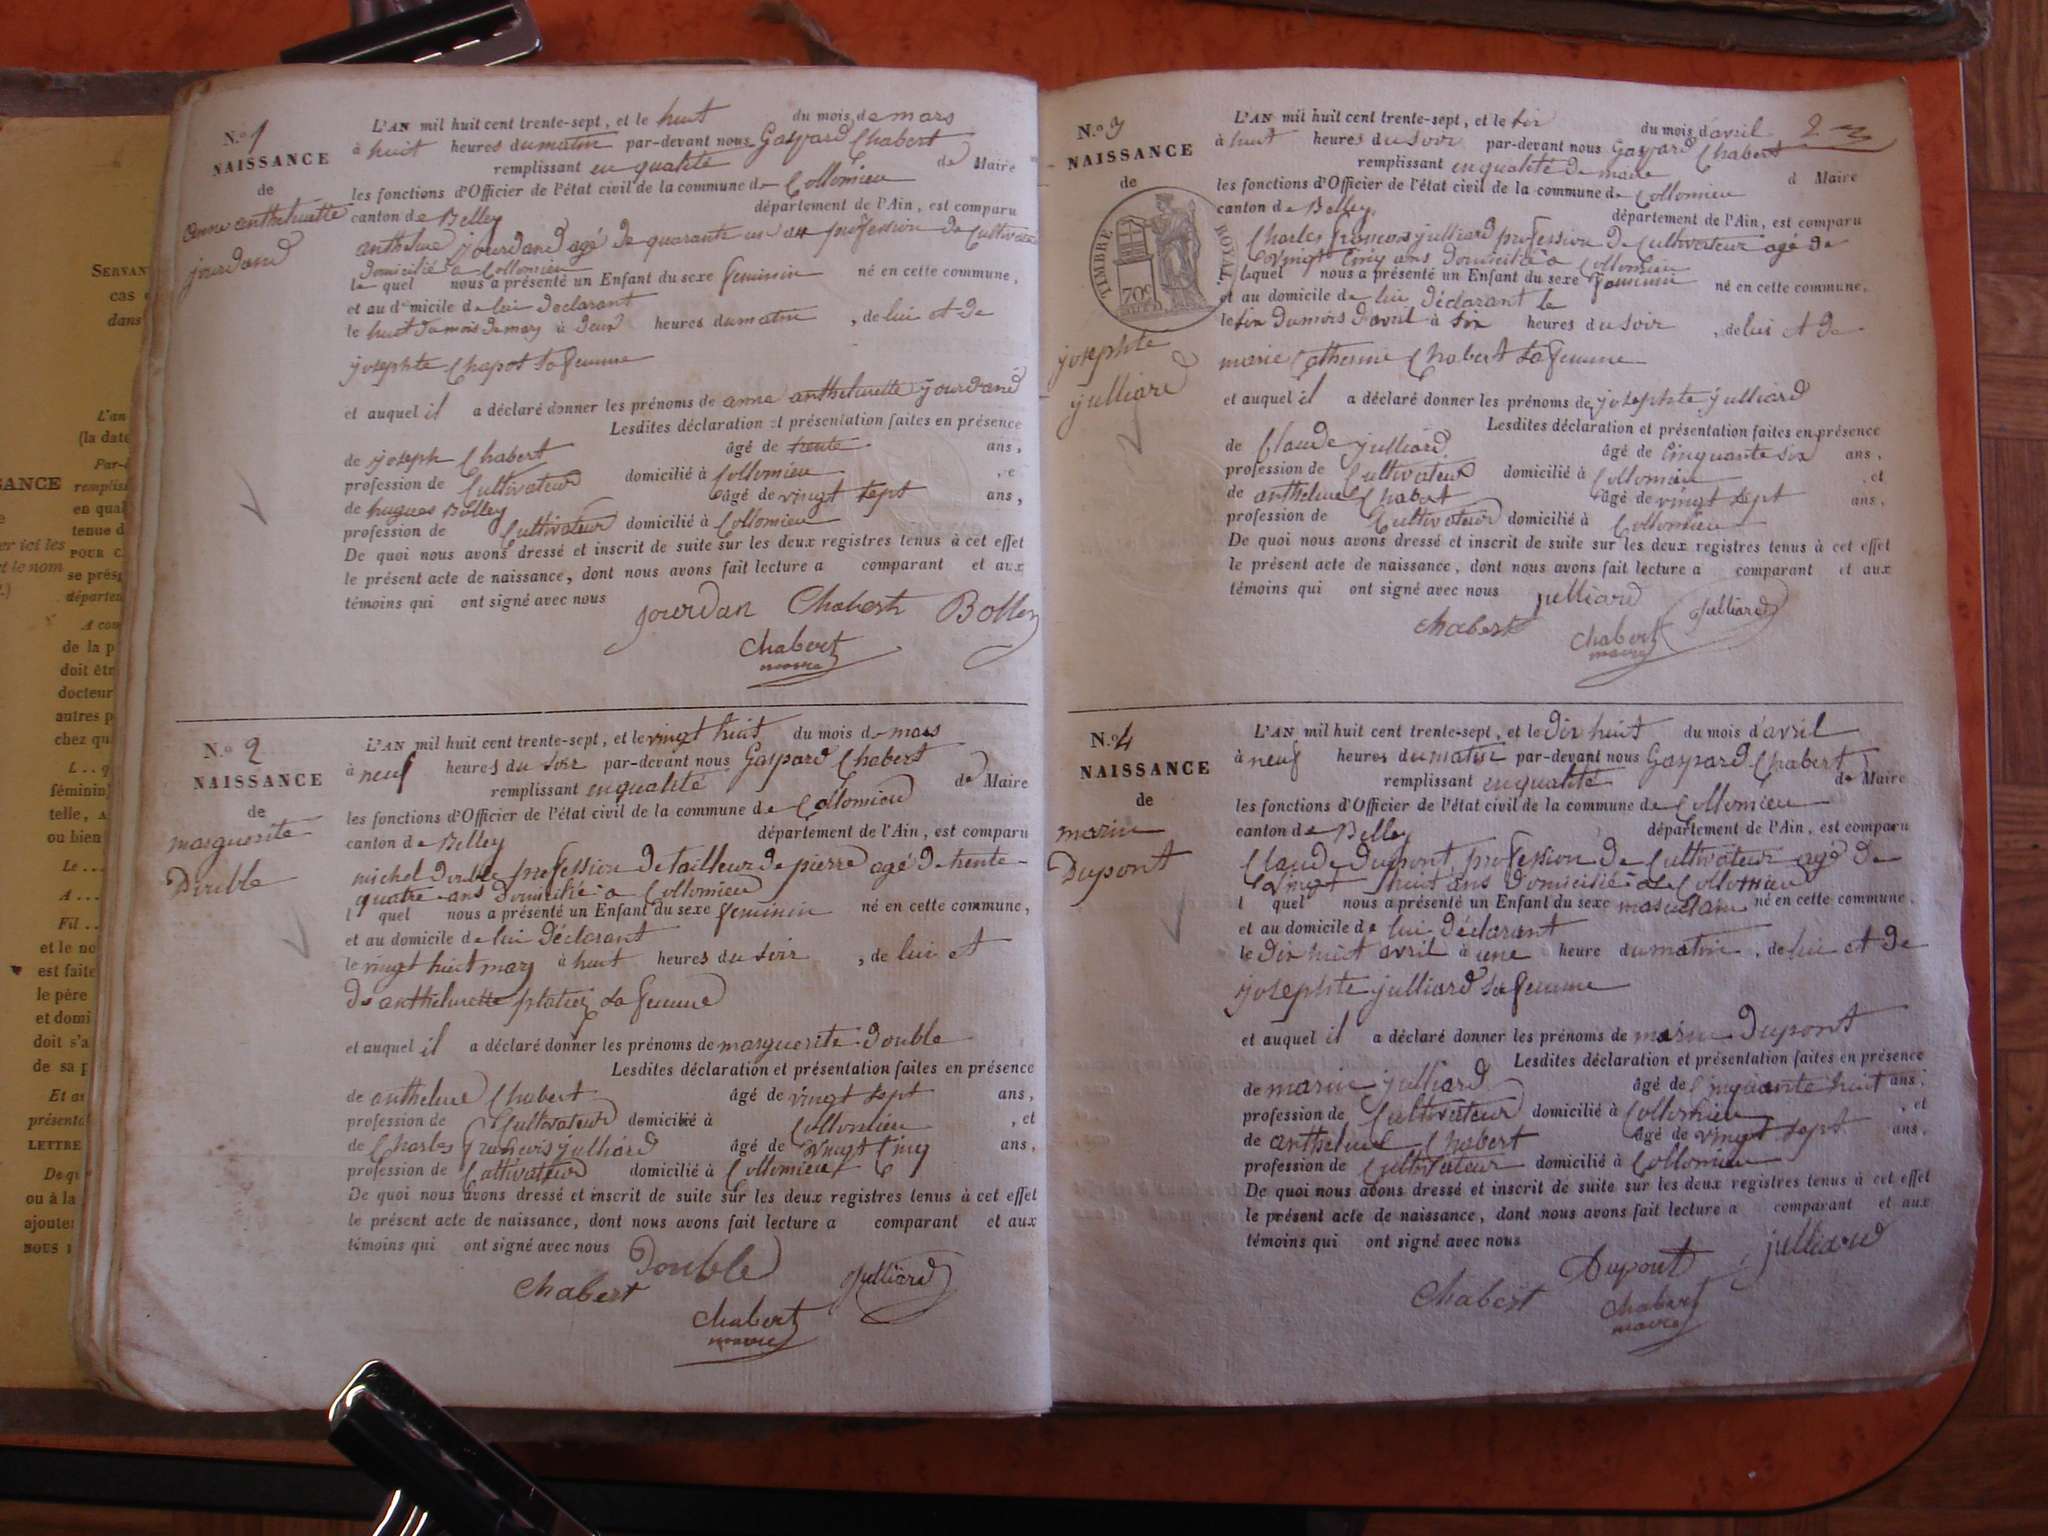 SERVAN
cas
dans
L'an
(la date
Par-
SANCE rempliss
en qual
tenue d
er ici les POUR C.
t le nom se prés
.) départem
A com
de la p
doit êtr
docteur
autres p
chez qu
L . . q
féminin
telle, A
ou bien
Le . . .
A . . .
Fil . .
et le no
est faite
le père
et domi
doit s'a
de sa p
Et au
présenta
LETTRE
De qu
ou à la
ajouter
NOUS
N.o 1
NAISSANCE
de
anne anthelmette
jourdand
L'AN mil huit cent trente-sept, et le huit du mois de mars
à huit heures du matin par-devant nous Gaspard Chabert
remplissant en qualité de Maire
les fonctions d'Officier de l'état civil de la commune de Collomieu
canton de Belley département de l'Ain, est comparu
anthelme jourdand agé de quarante un an profession de Cultivateur
domicilié a Collomieu
le quel nous a présenté un Enfant du sexe feminin né en cette commune,
et au domicile de lui declarant
le huit du mois de mars à deux heures du matin, de lui et de
josephte Chapot sa femme
et auquel il a déclaré donner les prénoms de anne anthelmette jourdand
Lesdites déclaration et présentation faites en présence
de joseph Chabert âgé de trente ans,
profession de Cultivateur domicilié à Collomieu, e
de hugues Bolley âgé de vingt sept ans,
profession de Cultivateur domicilié à Collomieu
De quoi nous avons dressé et inscrit de suite sur les deux registres tenus à cet effet
le présent acte de naissance, dont nous avons fait lecture a comparant et aux
témoins qui ont signé avec nous
jourdan Chabert Bolley
Chabert
maire
N.o 2
NAISSANCE
de
marguerite
Double
L'AN mil huit cent trente-sept, et le vingt huit du mois de mars
à neuf heures du soir par-devant nous Gaspard Chabert
remplissant en qualité de Maire
les fonctions d'Officier de l'état civil de la commune de Collomieu
canton de Belley département de l'Ain, est comparu
michel double profession de tailleur de pierre agé de trente
quatre ans domicilié a Collomieu
l quel nous a présenté un Enfant du sexe feminin né en cette commune,
et au domicile de lui déclarant
le vingt huit mars à huit heures du soir, de lui et
de anthelmette sa femme
et auquel il a déclaré donner les prénoms de marguerite double
Lesdites déclaration et présentation faites en présence
de anthelme Chabert âgé de vingt sept ans,
profession de Cultivateur domicilié à Collomieu, et
de Charles françois julliard âgé de vingt cinq ans,
profession de Cultivateur domicilié à Collomieu
De quoi nous avons dressé et inscrit de suite sur les deux registres tenus à cet effet
le présent acte de naissance, dont nous avons fait lecture a comparant et aux
témoins qui ont signé avec nous
Double
Chabert Julliard
Chabert
maire
2
N.o 3
NAISSANCE
de
TIMBRE ROYAL
70c
josephte
julliard
L'AN mil huit cent trente-sept, et le six du mois d'avril
à huit heures du soir par-devant nous Gaspard Chabert
remplissant en qualité de maire d Maire
les fonctions d'Officier de l'état civil de la commune de Collomieu
canton de Belley département de l'Ain, est comparu
Charles françois julliard profession de Cultivateur agé de
vingt cinq ans domicilié a Collomieu
lequel nous a présenté un Enfant du sexe feminin né en cette commune,
et au domicile de lui déclarant le
le six du mois d'avril à six heures du soir, de lui et de
marie Catherine Chabert sa femme
et auquel il a déclaré donner les prénoms de josephte julliard
Lesdites déclaration et présentation faites en présence
de Claude julliard âgé de Cinquante six ans,
profession de Cultivateur domicilié à Collomieu, et
de anthelme Chabert âgé de vingt sept ans,
profession de Cultivateur domicilié à Collomieu
De quoi nous avons dressé et inscrit de suite sur les deux registres tenus à cet effet
le présent acte de naissance, dont nous avons fait lecture a comparant et aux
témoins qui ont signé avec nous julliard
Chabert Chabert Julliard
maire
N.o 4
NAISSANCE
de
marin
Dupont
L'AN mil huit cent trente-sept, et le dix huit du mois d'avril
à neuf heures du matin par-devant nous Gaspard Chabert
remplissant en qualité de Maire
les fonctions d'Officier de l'état civil de la commune de Collomieu
canton de Belley département de l'Ain, est comparu
Claude dupont profession de Cultivateur agé de
vingt huit ans domicilié a Collomieu
l quel nous a présenté un Enfant du sexe masculain né en cette commune,
et au domicile de lui déclarant
le dix huit avril à une heure du matin, de lui et de
josephte julliard sa femme
et auquel il a déclaré donner les prénoms de marin Dupont
Lesdites déclaration et présentation faites en présence
de marin julliard âgé de Cinquante huit ans,
profession de Cultivateur domicilié à Collomieu, et
de anthelme Chabert âgé de vingt sept ans,
profession de Cultivateur domicilié à Collomieu
De quoi nous avons dressé et inscrit de suite sur les deux registres tenus à cet effet
le présent acte de naissance, dont nous avons fait lecture a comparant et aux
témoins qui ont signé avec nous
Dupont julliard
Chabert Chabert
maire